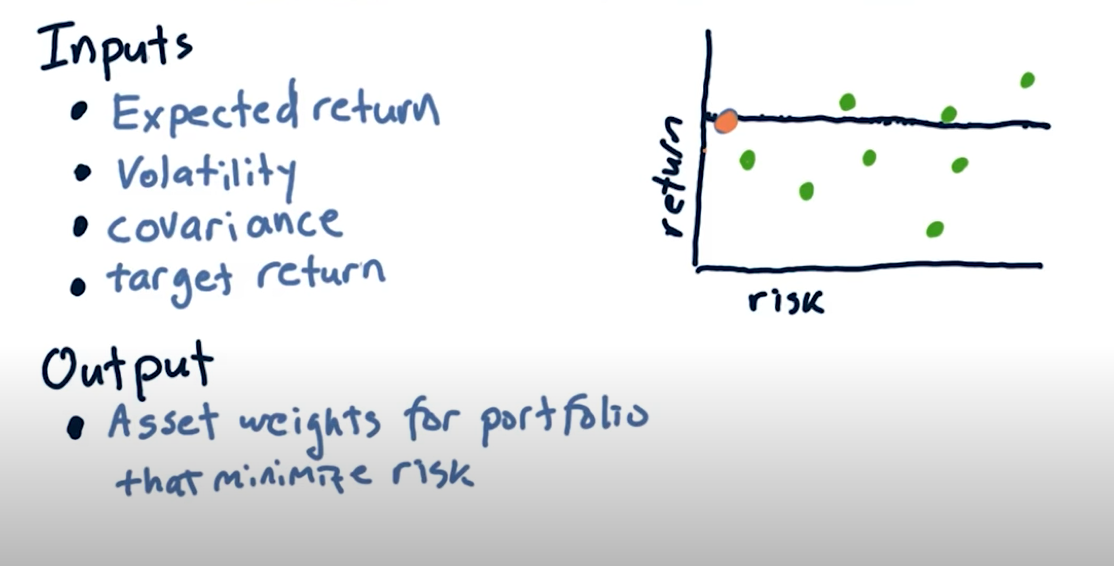 Inputs
• Expected return
• Volatility
• covariance
• target return
Output
• Asset weights for portfolio
that minimize risk
return
risk